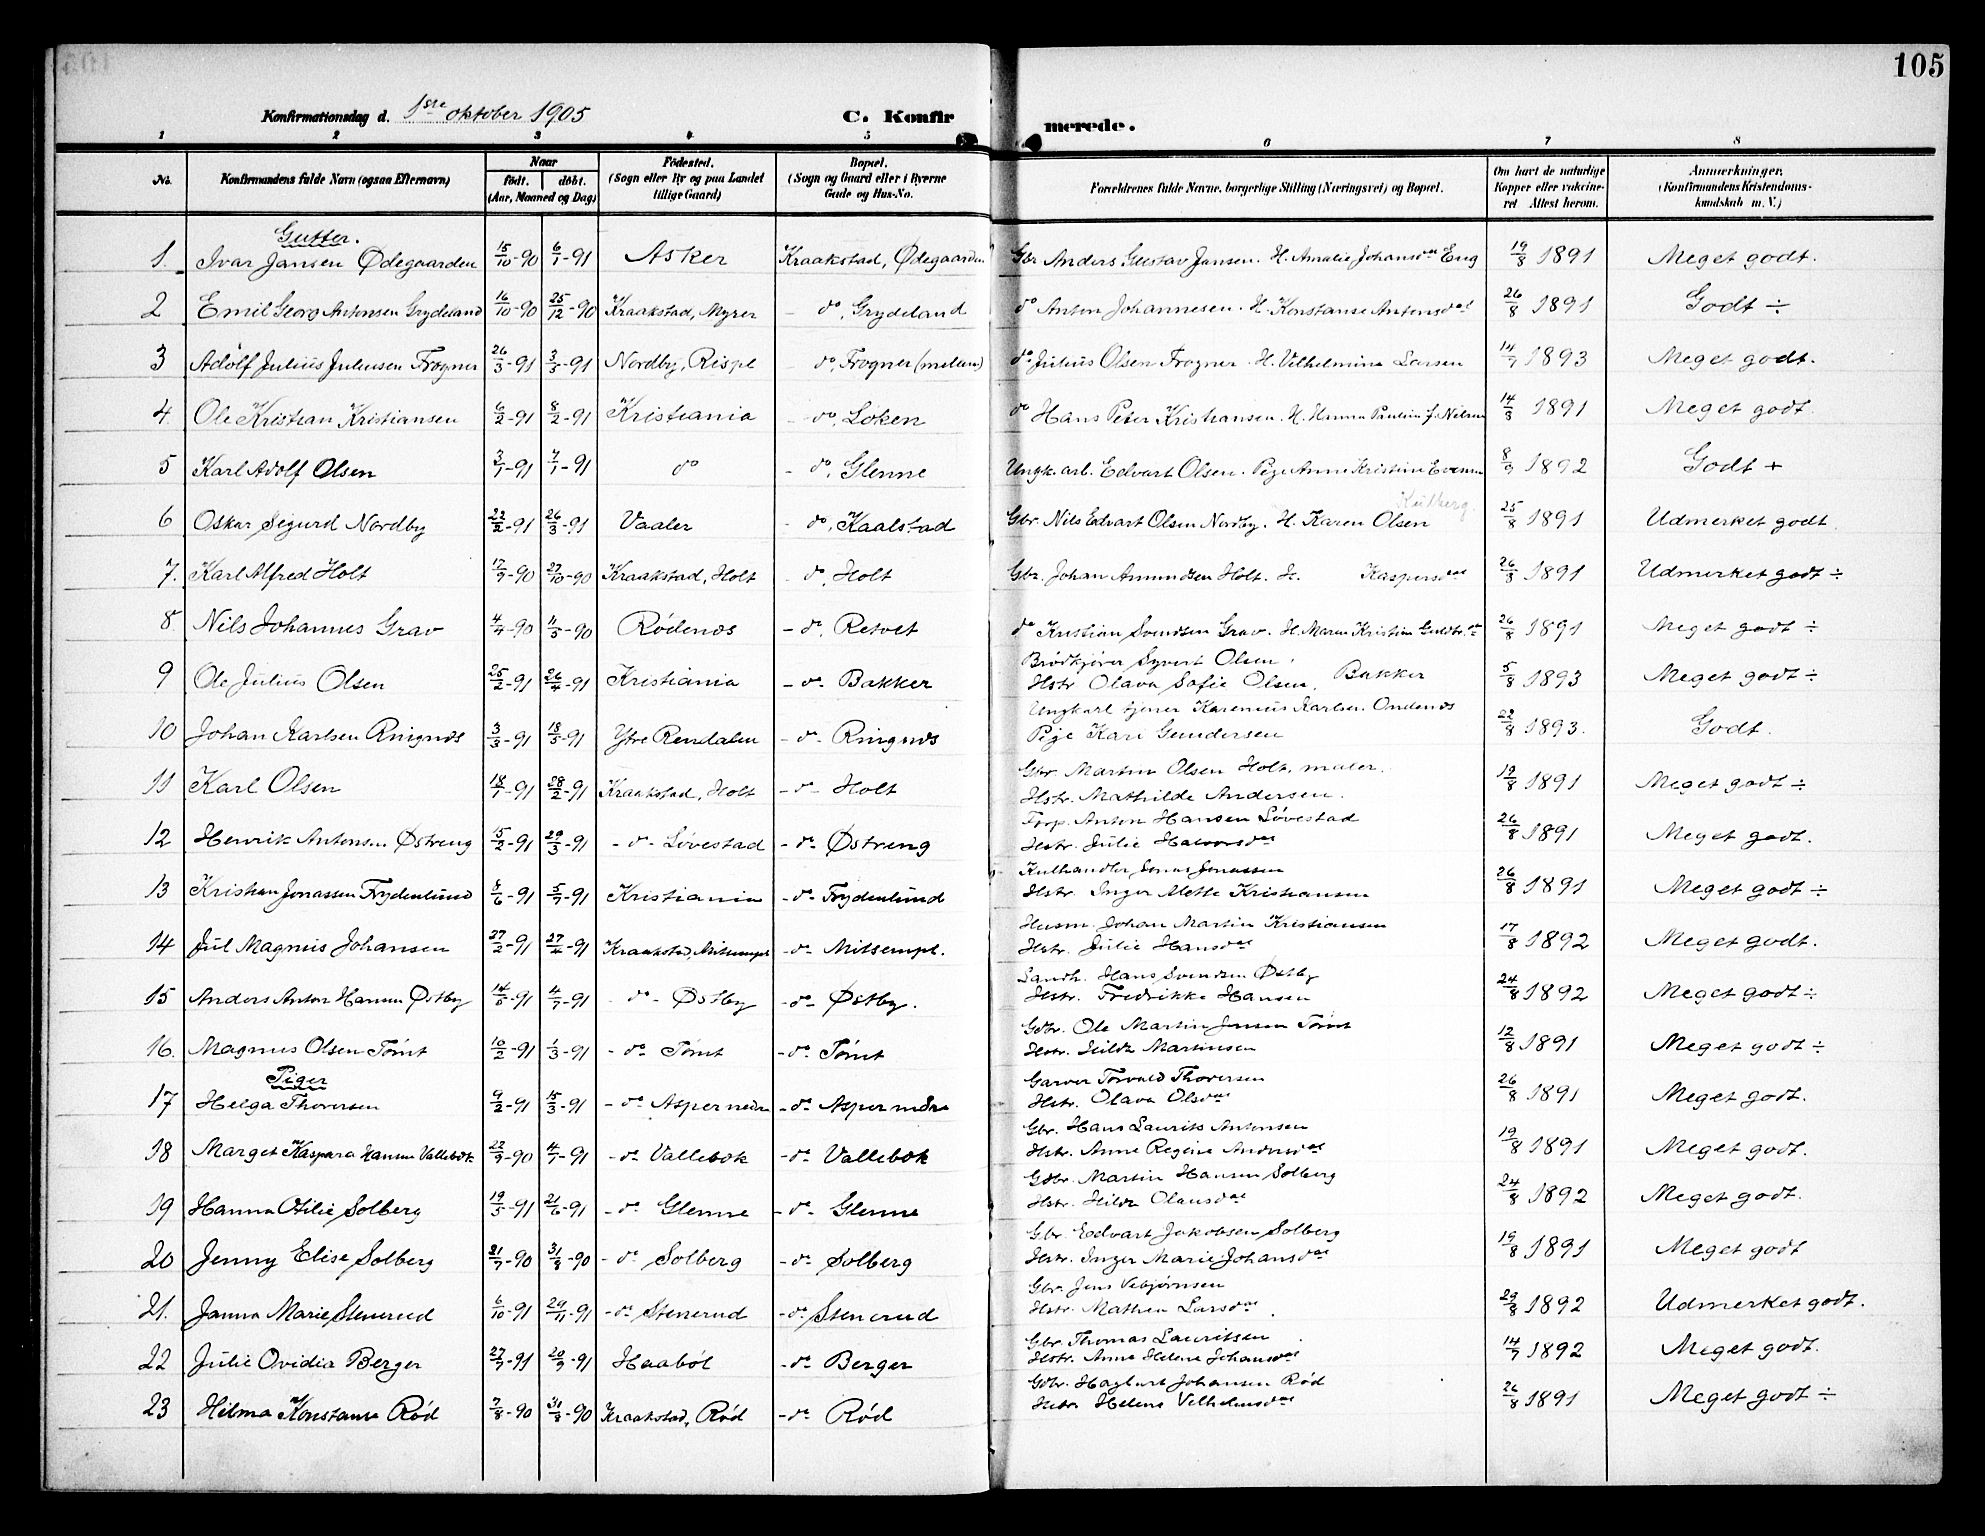 105
Konfirmationsdag d. 1ste oktober 1905 C. Konfirmerede.
1 2 3 4 5 6 7 8
No. Konfirmandens fulde Navn (ogsaa Efternavn) Naar født. døbt. (Aar, Maaned og Dag) Fødested. (Sogn eller By og paa Landet tillige Gaard) Bopæl. (Sogn og Gaard eller i Byerne Gade og Hus-No. Forældrenes fulde Navne, borgerlige Stilling (Næringsvei) og Bopæl. Om havt de naturlige Kopper eller vaccineret Attest herom. Anmærkninger, (Konfirmandens Kristendomskundskab m. V.)
Gutter.
1. Ivar Jansen Ødegaarden 15/10-90 6/1-91 Asker Kraakstad, Ødegaarden Gbr. Anders Gustav Jansen. H. Amalie Johansdat Eng 19/8 1891 Meget godt.
2 Emil Georg Antonsen Grydeland 16/10-90 25/12-90 Kraakstad, Myrer - do, Grydeland do Anton Johannesen. H. Konstanse Antonsdat 26/8 1891 Godt ÷
3 Adolf Julius Juliusen Frogner 26/3-91 3/5-91 Nordby, Rispe - do, Frogner (mellem) do Julius Olsen Frogner. H. Vilhelmine Larsen 14/7 1893 Meget godt.
4. Ole Kristian Kristiansen 6/2-91 8/2-91 Kristiania - do, Loken do Hans Peter Kristiansen. H. Hanna Paulin f. Nilsen 14/8 1891 Meget godt.
5 Karl Adolf Olsen 3/1-91 7/1-91 do - do, Glenne Ungk. arl. Edvart Olsen. Pige Anne Kristine Evensen 8/9 1892 Godt +
Kulberg.
6 Oskar Sigurd Nordby 22/2-91 26/3-91 Vaaler - do, Kaalstad Gbr. Nils Edvart Olsen Nordby. H. Karen Olsen 25/8 1891 Udmerket godt.
7. Karl Alfred Holt 17/9-90 27/10-90 Kraakstad, Holt - do, Holt Gbr. Johan Amundsen Holt. H. Kaspersdat 26/8 1891 Udmerket godt ÷
8. Nils Johannes Grav 4/4-90 11/5-90 Rødenes - do, Retvet do Kristian Svendsen Grav. H. Maren Kristine Guldbr.dat 26/8 1891 Meget godt ÷
Brødkjører Syvert Olsen.
9 Ole Julius Olsen 25/2-91 26/4-91 Kristiania - do - Bakker Hstr. Olava Sofie Olsen, Bakker 5/8 1893 Meget godt ÷
Ungkarl tjener Karenius Karlsen Ondenes
10 Johan Karlsen Ringnes 3/3-91 18/5-91 Ytre Rendalen - do - Ringnes Pige Kari Gundersen 22/8 1893. Godt.
Gbr. Martin Olsen Holt, maler.
11 Karl Olsen 18/1-91 28/2-91 Kraakstad, Holt - do - Holt Hstr. Mathilde Andersen. 19/8 1891 Meget godt ÷
Forp. Anton Hansen Løvestad
12 Henrik Antonsen Østreng 15/2-91 29/3-91 - do - Løvestad - do - Østreng Hstr. Julie Halvorsdat 26/8 1891 Meget godt.
Kulhandler Jonas Jonassen
13 Kristian Jonassen Frydenlund 8/6-91 5/7-91 Kristiania - do - Frydenlund Hstr. Inger Mette Kristiansen 26/8 1891 Meget godt ÷
Husm. Johan Martin Kristiansen
14 Jul Magnus Johansen 27/2-91 27/4-91 Kraakstad, Mitsempl. - do - Mitsempl. Hstr. Julie Hansdat 17/8 1892 Meget godt.
Landh. Hans Svendsen Østby
15 Anders Anton Hansen Østby 14/5-91 4/7-91 - do - Østby - do - Østby. Hstr. Fredrikke Hansen 24/8 1892 Meget godt ÷
Gdbr. Ole Martin Jensen Tomt
16. Magnus Olsen Tomt 10/2-91 1/3-91 - do - Tomt - do - Tomt Hstr. Hilda Martinsen 12/8 1891 Meget godt ÷
Piger
Garver Torvald Thoresen
17 Helga Thoresen 9/2-91 15/3-91 - do - Asper nedre - do - Asper nedre Hstr. Olava Olsdat 26/8 1891 Meget godt.
Gbr. Hans Laurits Antonsen
18 Marget Kaspara Hansen Vallebok 22/9-90 4/1-91 - do - Vallebok - do - Vallebok Hstr. Anne Regine Andersdat 19/8 1891 Meget godt.
Gdbr. Martin Hansen Solberg
19 Hanna Otilie Solberg 19/5-91 21/6-91 - do - Glenne - do - Glenne Hstr. Hilda Olausdat 24/8 1892 Meget godt.
Gbr. Edvart Jakobsen Solberg
20 Jenny Elise Solberg 21/7-90 31/8-90 - do - Solberg - do - Solberg Hstr. Inger Marie Johansdat 19/8 1891 Meget godt
Gbr. Jens Vebjørnsen
21. Janna Marie Stenerud 6/10-91 29/11-91 - do - Stenerud - do - Stenerud Hstr. Mathea Larsdat. 29/8 1892 Udmerket godt.
Gbr. Thomas Lauritsen
22 Julie Ovidia Berger 27/7-91 20/9-91 Haabøl - do - Berger Hstr. Anne Helene Johansdat 14/7 1892 Meget godt.
Gdbr. Hagbart Johansen Rød
23 Hilma Konstanse Rød 7/8-90 31/8-90 Kraakstad, Rød - do - Rød Hstr. Helene Velhelmsdat 26/8 1891 Meget godt ÷